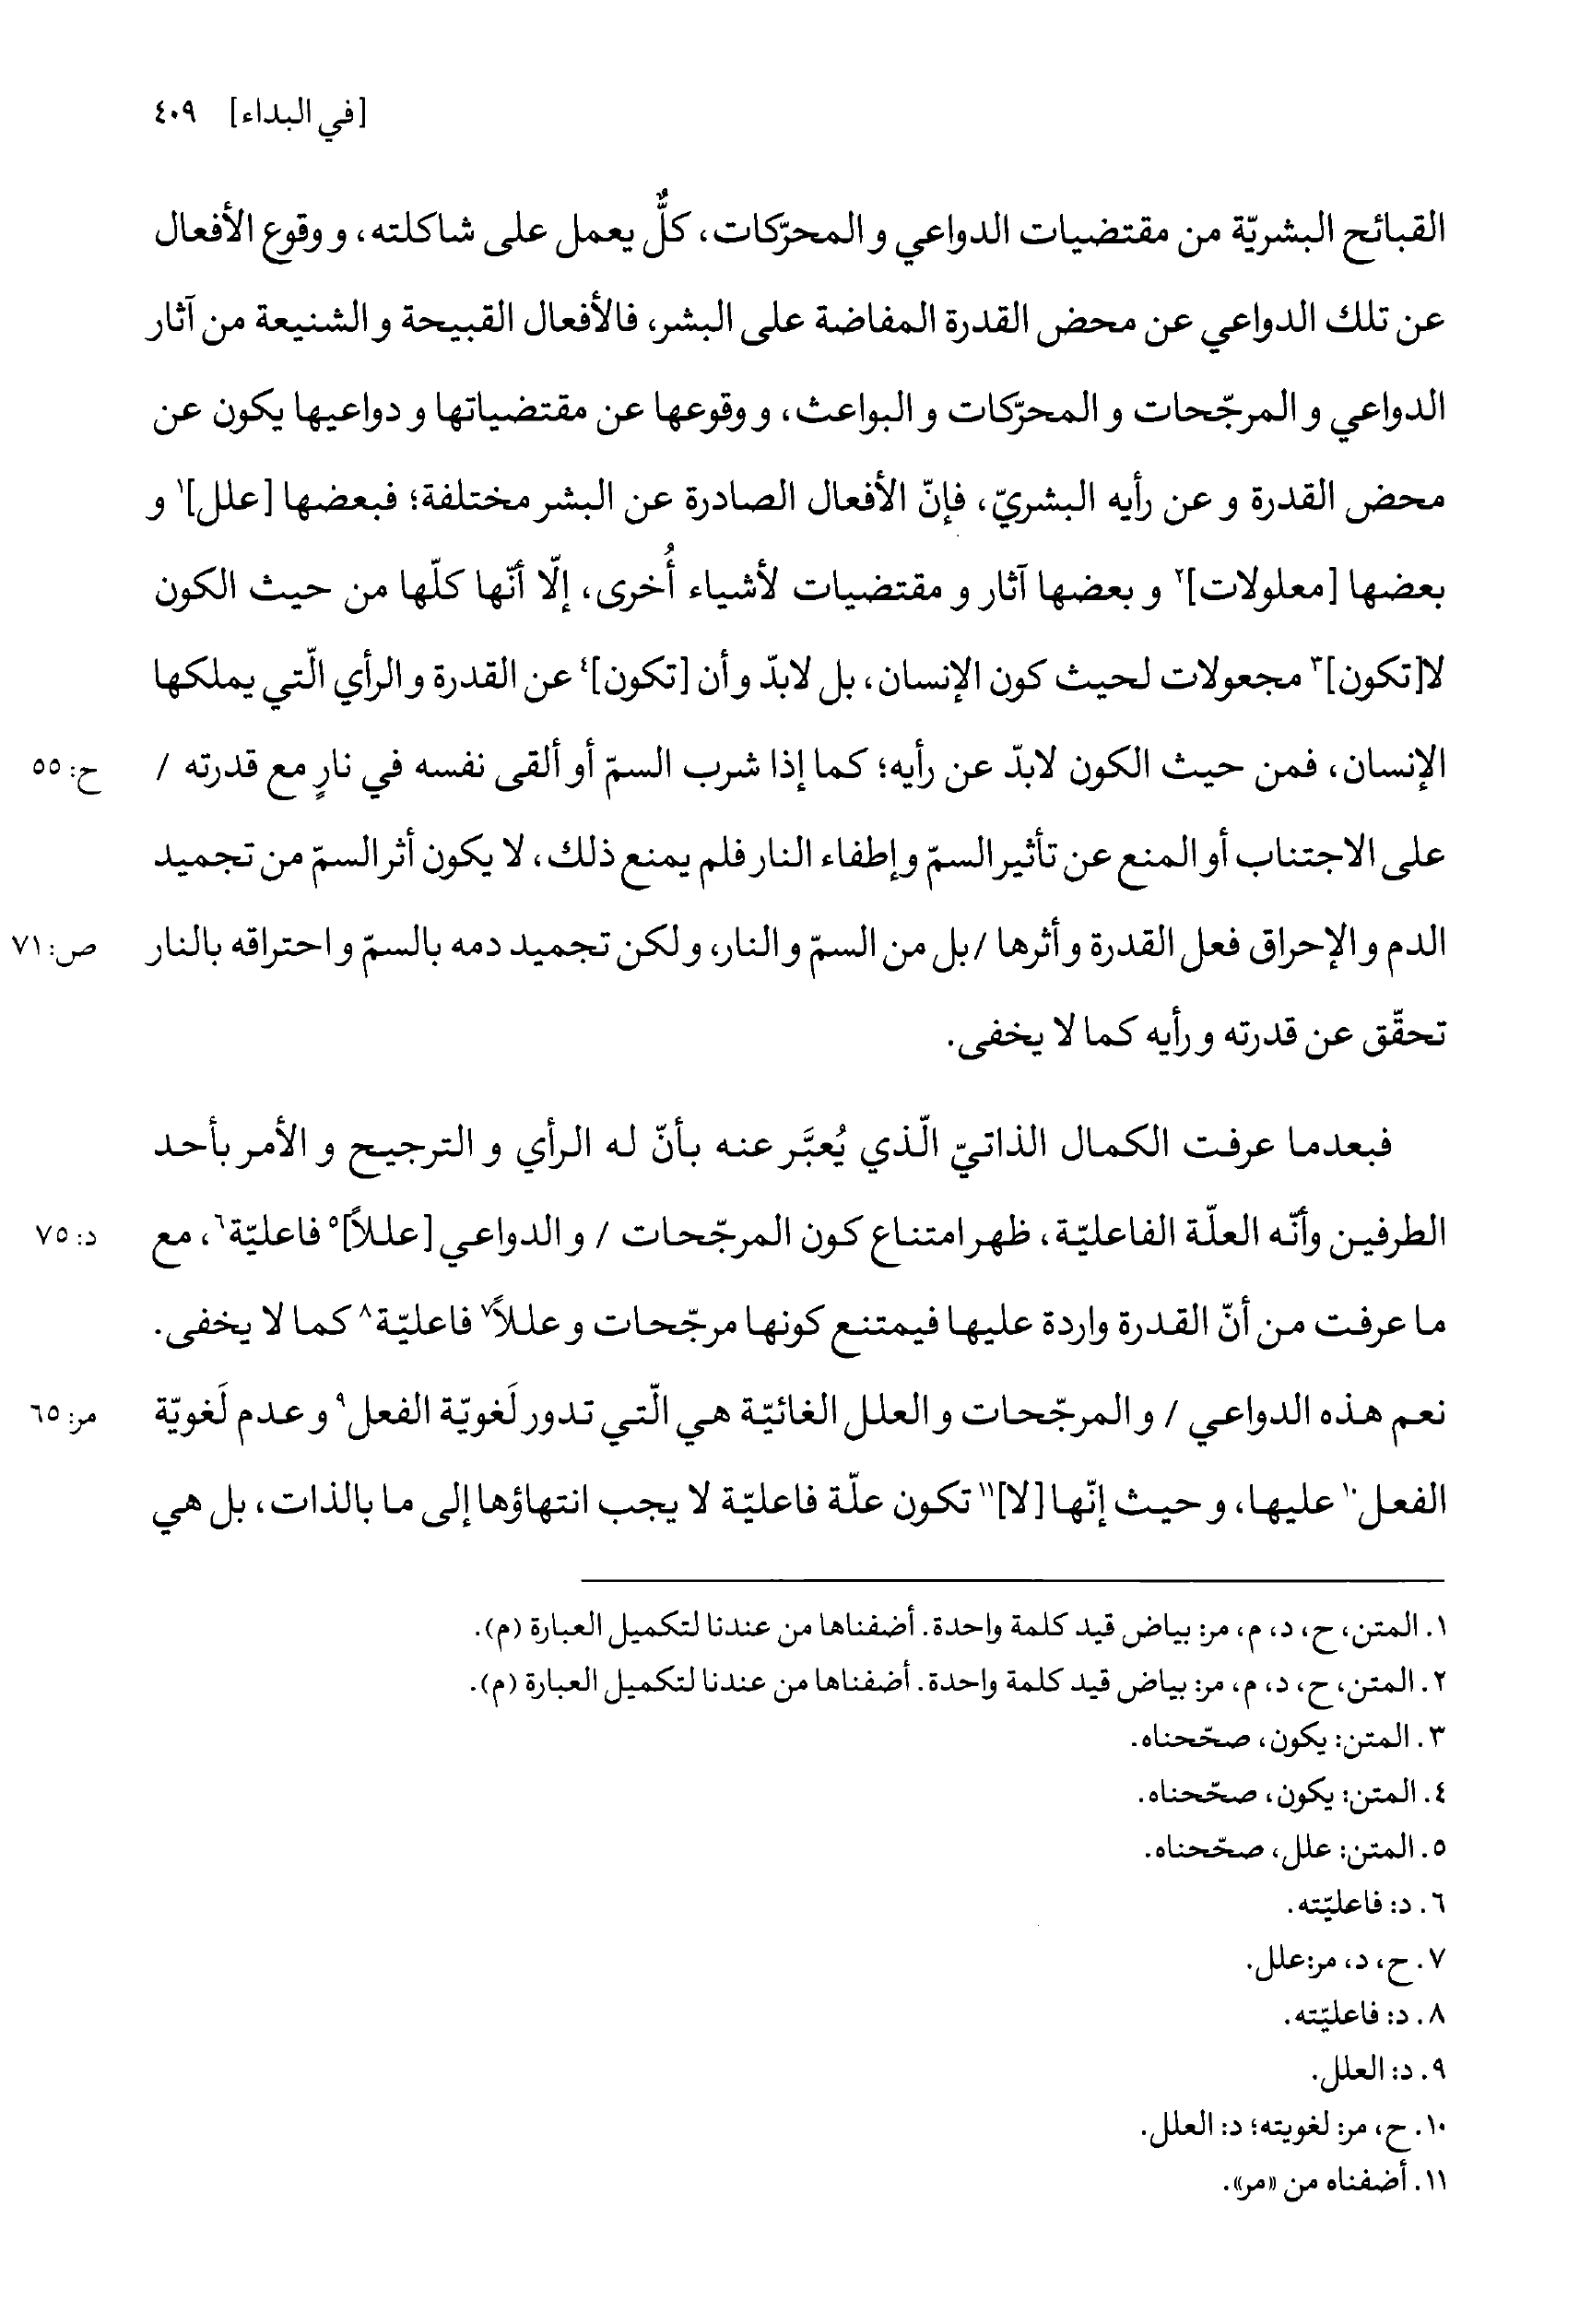 [في البداء] ٤٠٩
القبائح البشريّة من مقتضيات الدواعي و المحرّكات، كلٌّ يعمل على شاكلته، و وقوع الأفعال
عن تلك الدواعي عن محض القدرة المفاضة على البشر، فالأفعال القبيحة و الشنيعة من آثار
الدواعي و المرجّحات و المحرّكات و البواعث، و وقوعها عن مقتضياتها و دواعيها يكون عن
محض القدرة و عن رأيه البشريّ، فإنّ الأفعال الصادرة عن البشر مختلفة؛ فبعضها [علل]١ و
بعضها [معلولات]٢ و بعضها آثار و مقتضيات لأشياء أُخرى، إلّا أنّها كلّها من حيث الكون
لا[تكون]٣ مجعولات لحيث كون الإنسان، بل لابدّ و أن [تكون]٤ عن القدرة و الرأي الّتي يملكها
الإنسان، فمن حيث الكون لابدّ عن رأيه؛ كما إذا شرب السمّ أو ألقى نفسه في نارٍ مع قدرته / ح: ٥٥
على الاجتناب أو المنع عن تأثير السمّ و إطفاء النار فلم يمنع ذلك، لا يكون أثر السمّ من تجميد
الدم و الإحراق فعل القدرة و أثرها / بل من السمّ و النار، و لكن تجميد دمه بالسمّ و احتراقه بالنار ص: ٧١
تحقّق عن قدرته و رأيه كما لا يخفى.
فبعدما عرفت الكمال الذاتيّ الّذي يُعبَّر عنه بأنّ له الرأي و الترجيح و الأمر بأحد
الطرفين وأنّه العلّة الفاعليّة، ظهر امتناع كون المرجّحات / و الدواعي [عللاً]٥ فاعليّة٦، مع د: ٧٥
ما عرفت من أنّ القدرة واردة عليها فيمتنع كونها مرجّحات و عللاً٧ فاعليّة٨ كما لا يخفى.
نعم هذه الدواعي / و المرجّحات و العلل الغائيّة هي الّتي تدور لَغويّة الفعل٩ و عدم لَغويّة مر: ٦٥
الفعل١٠ عليها، و حيث إنّها [لا]١١ تكون علّة فاعليّة لا يجب انتهاؤها إلى ما بالذات، بل هي
١. المتن، ح، د، م، مر: بياض قيد كلمة واحدة. أضفناها من عندنا لتكميل العبارة (م).
٢. المتن، ح، د، م، مر: بياض قيد كلمة واحدة. أضفناها من عندنا لتكميل العبارة (م).
٣. المتن: يكون، صحّحناه.
٤. المتن: يكون، صحّحناه.
٥. المتن: علل، صحّحناه.
٦. د: فاعليّته.
٧. ح، د، مر:علل.
٨. د: فاعليّته.
٩. د: العلل.
١٠. ح، مر: لغويته؛ د: العلل.
١١. أضفناه من «مر».